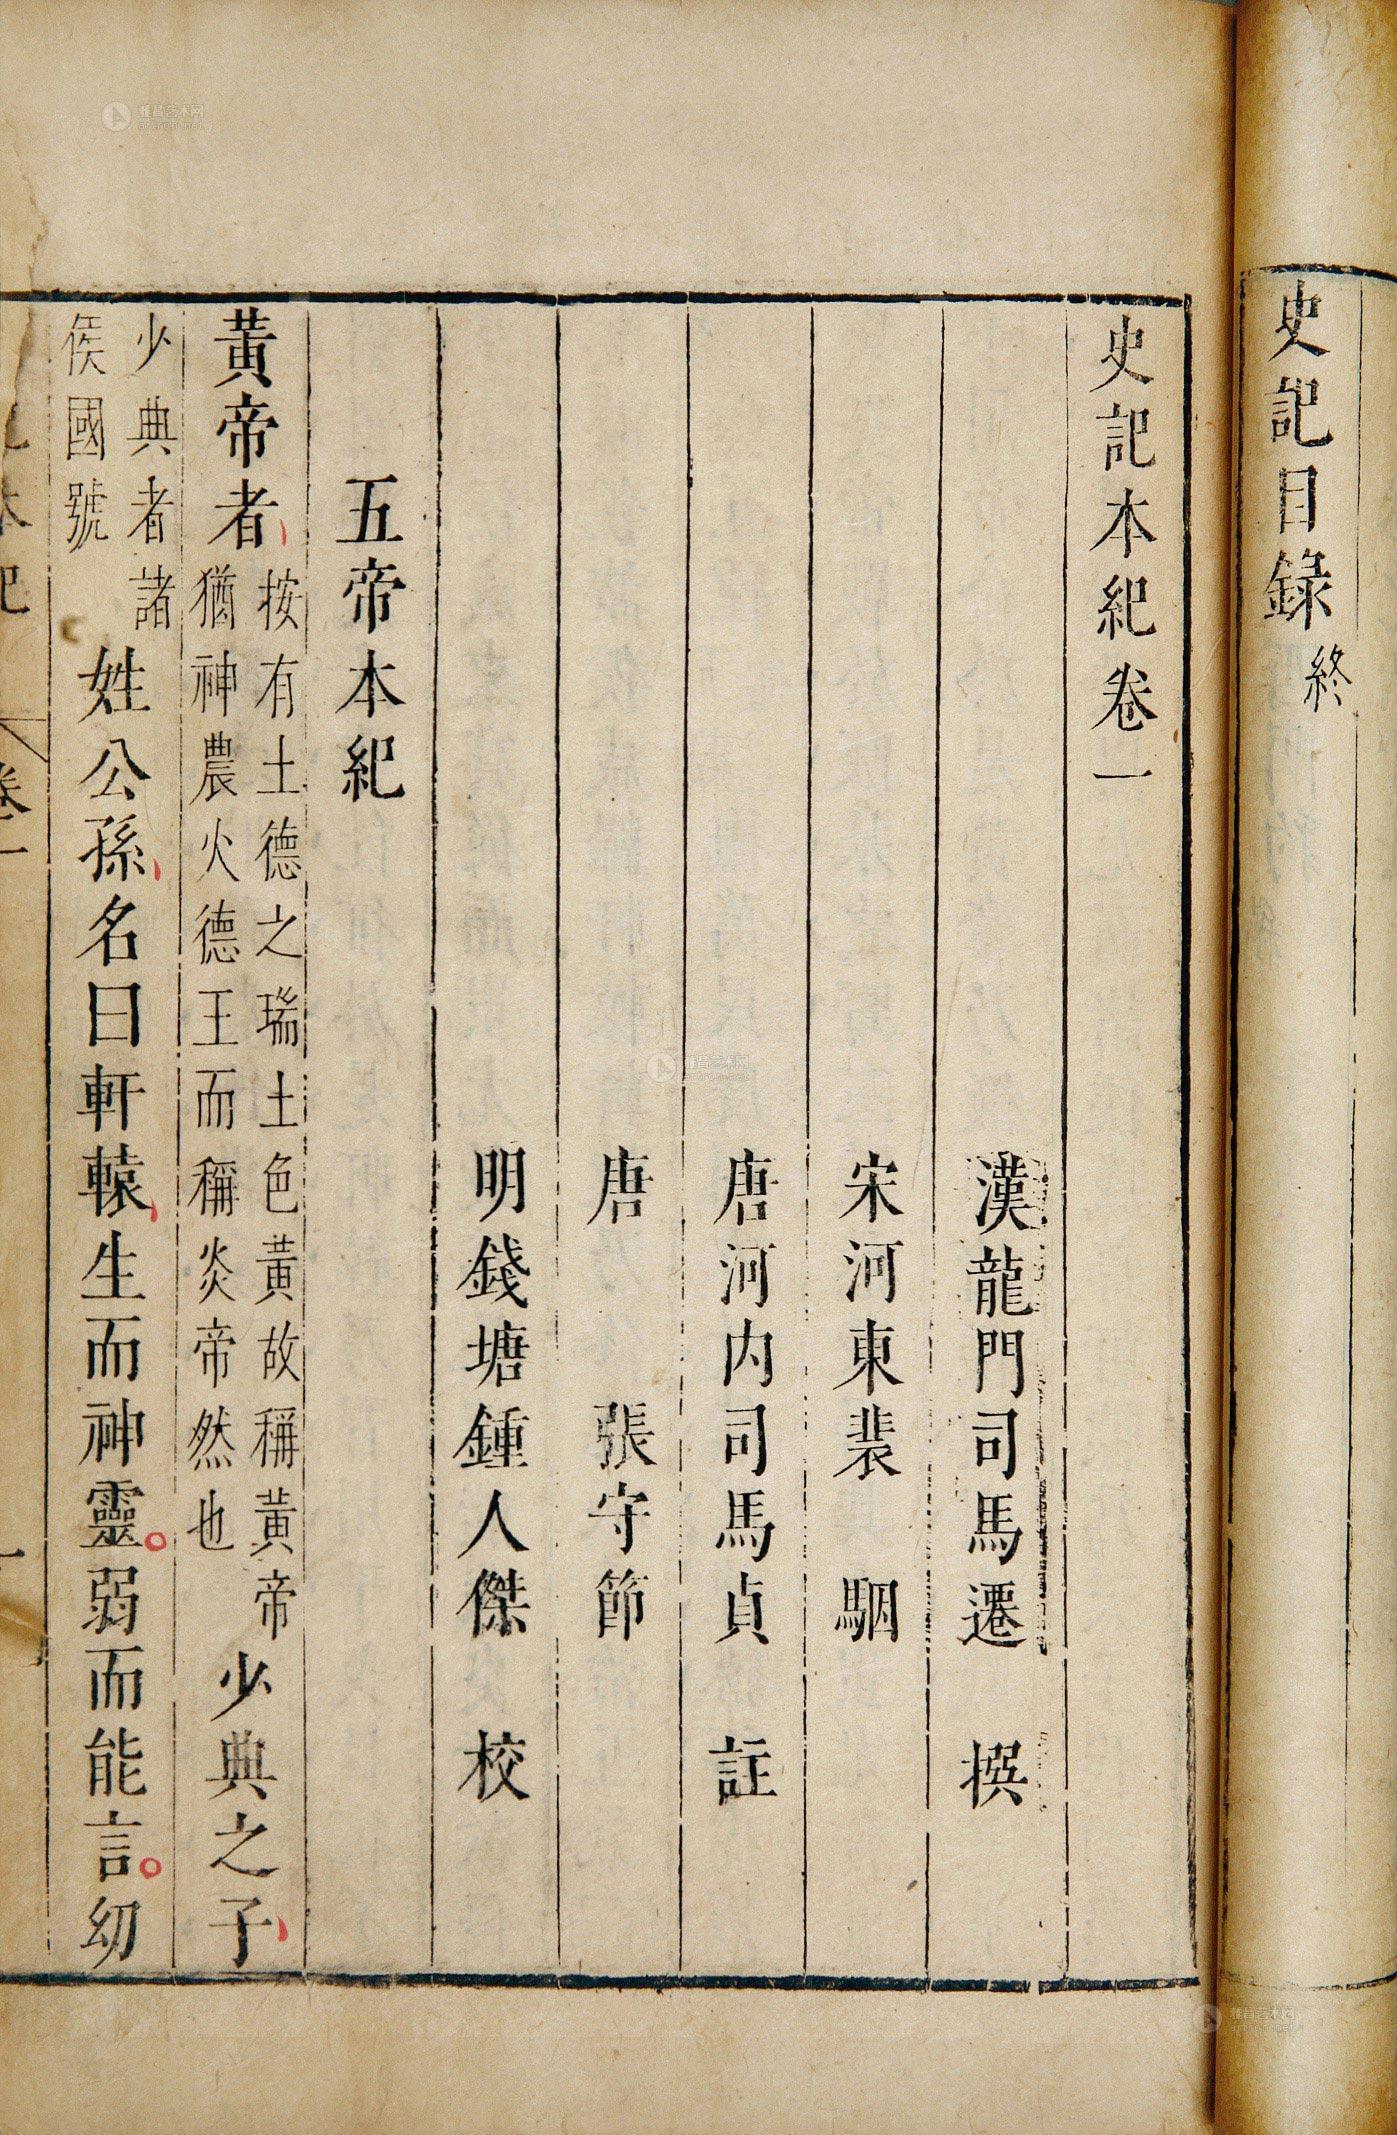 史記目錄終
史記本紀卷一
漢龍門司馬遷撰
宋河東裴駰
唐河內司馬貞註
唐張守節
明錢塘鍾人傑校
五帝本紀
黃帝者
按有土德之瑞土色黃故稱黃帝
猶神農火德王而稱炎帝然也
少典之子
少典者諸
侯國號
姓公孫名曰軒轅生而神靈弱而能言幼
本紀
卷一
一
雅昌艺术网
artron.net
雅昌艺术网
artron.net
雅昌艺术网
artron.net